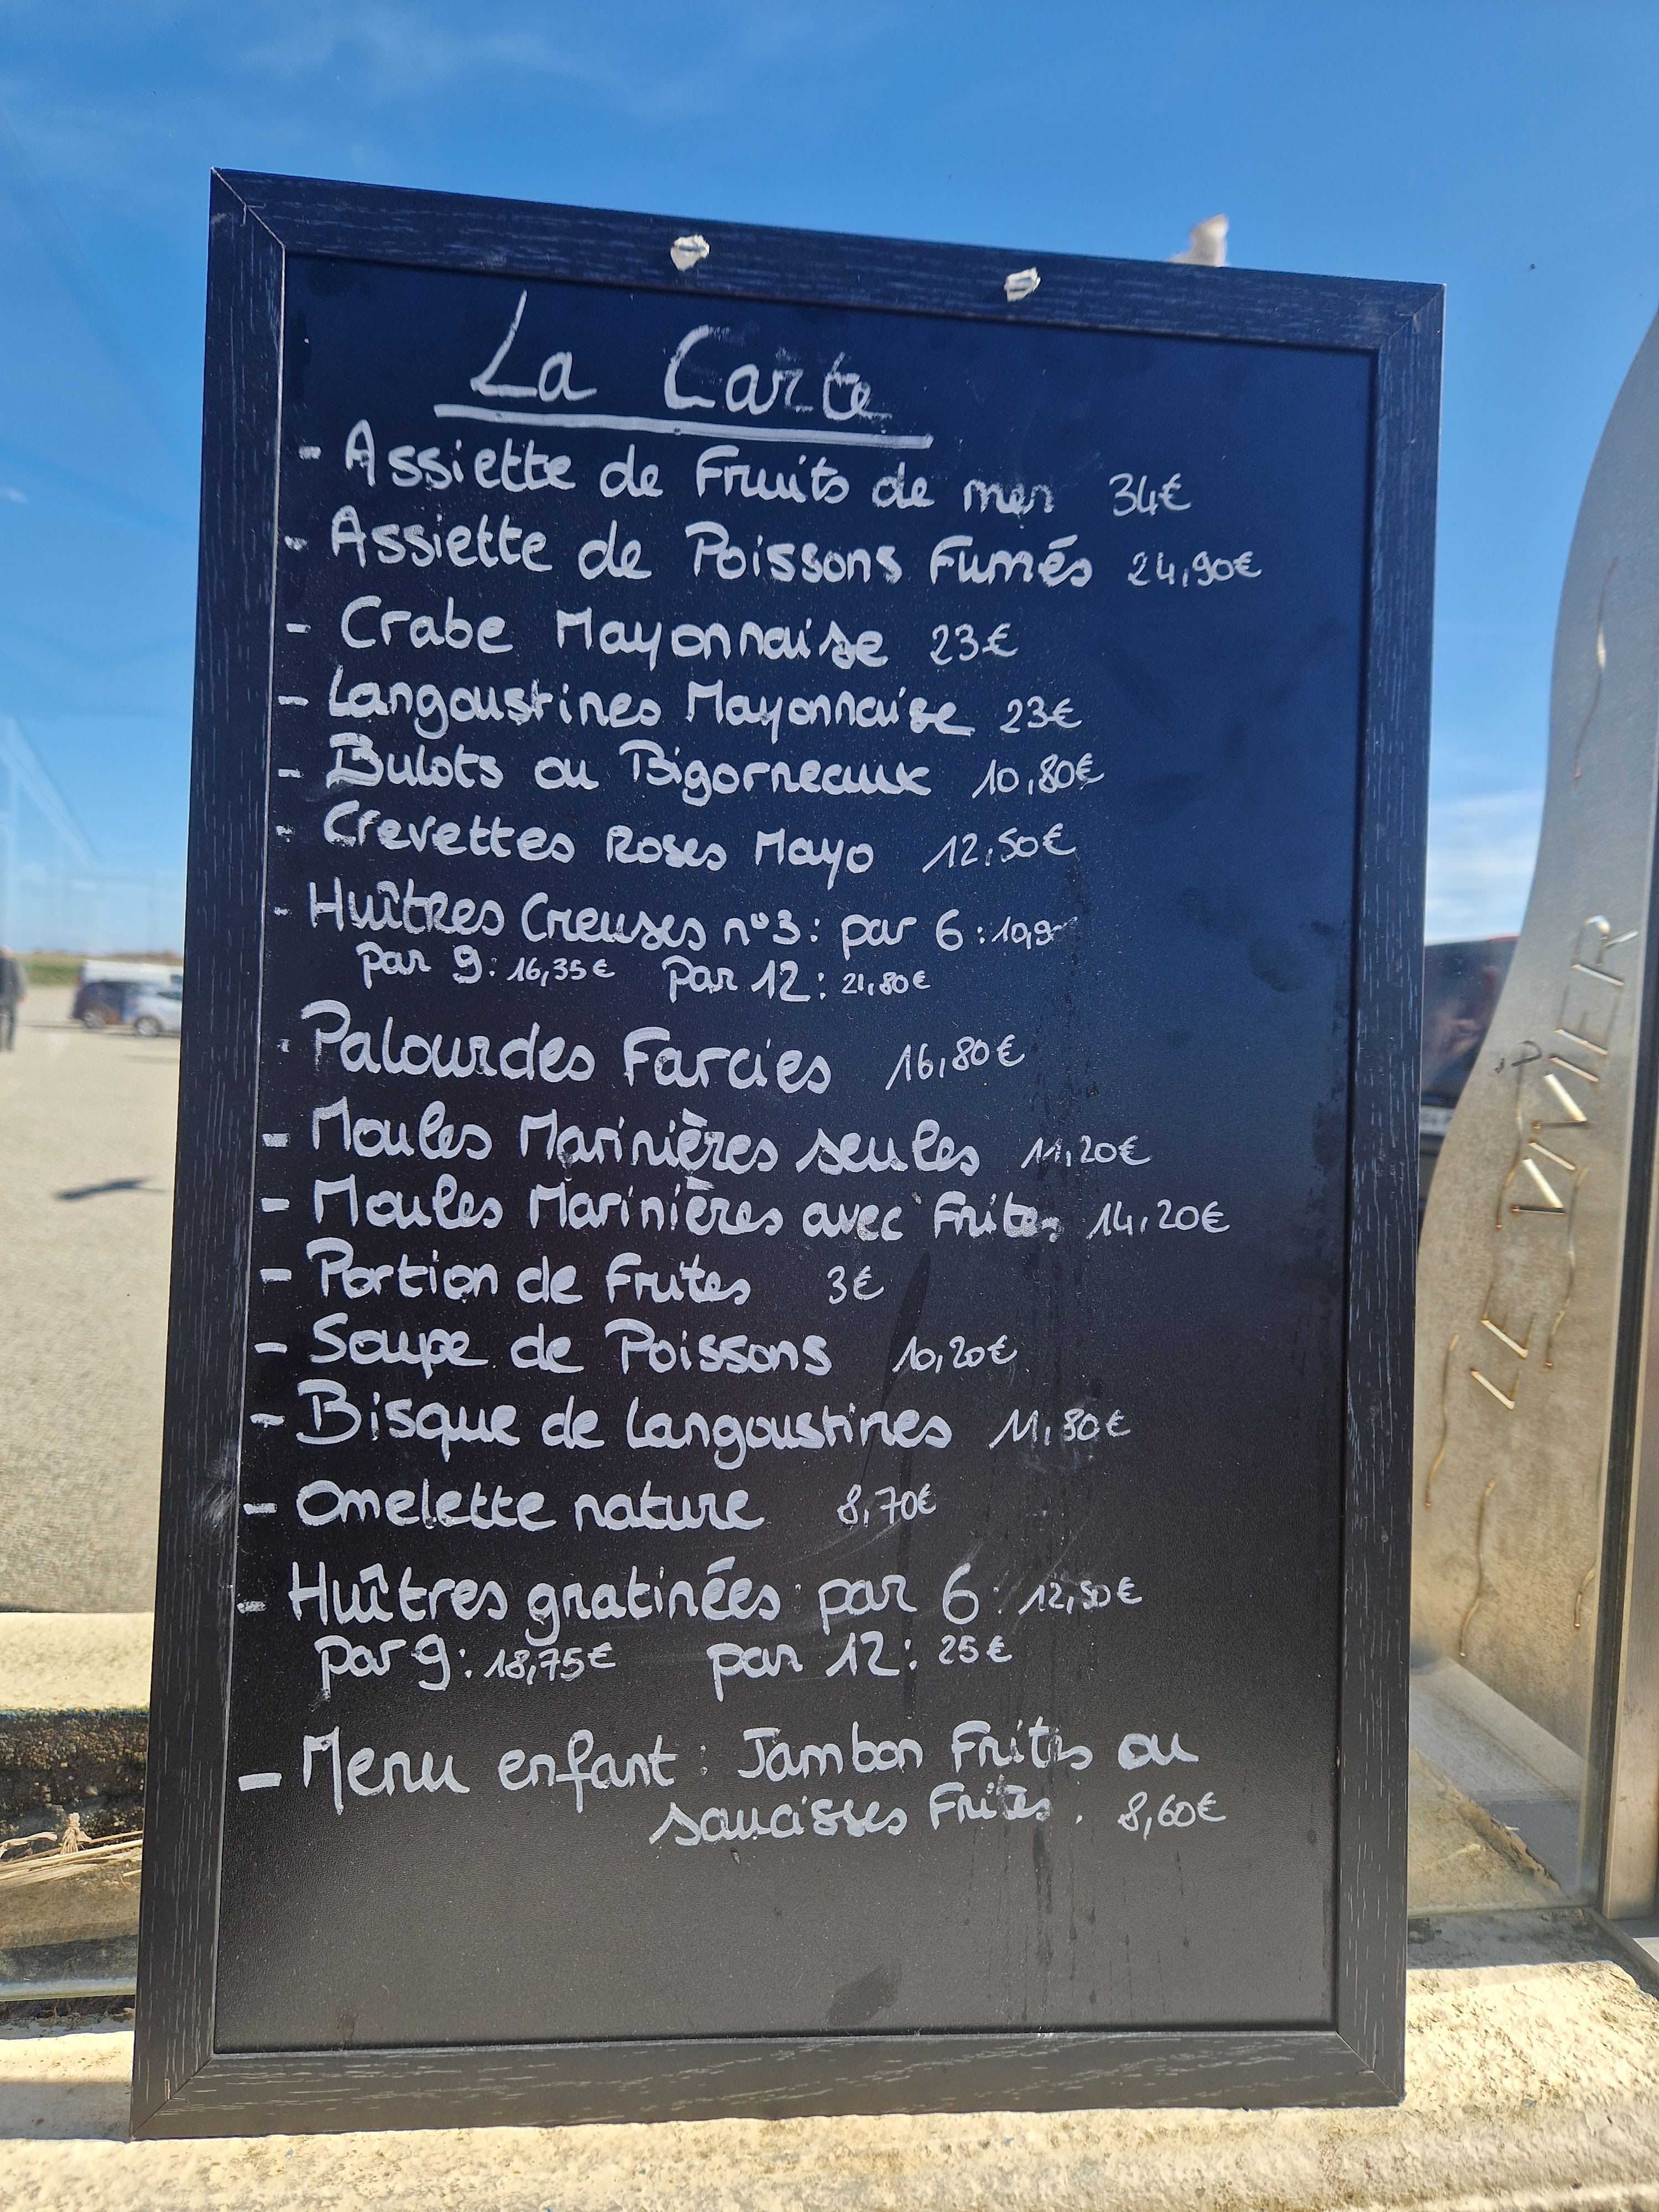 La Carte
- Assiette de Fruits de mer 34€
- Assiette de Poissons Fumés 24,90€
- Crabe Mayonnaise 23€
- Langoustines Mayonnaise 23€
- Bulots ou Bigorneaux 10,80€
- Crevettes Roses Mayo 12,50€
- Huîtres Creuses n°3: par 6: 10,9
par 9: 16,35€ par 12: 21,80€
- Palourdes Farcies 16,80€
- Moules Marinières seules 11,20€
- Moules Marinières avec Frites 14,20€
- Portion de Frites 3€
- Soupe de Poissons 10,20€
- Bisque de Langoustines 11,80€
- Omelette nature 8,70€
- Huîtres gratinées par 6: 12,50€
par 9: 18,75€ par 12: 25€
- Menu enfant: Jambon Frites ou
saucisses Frites. 8,60€